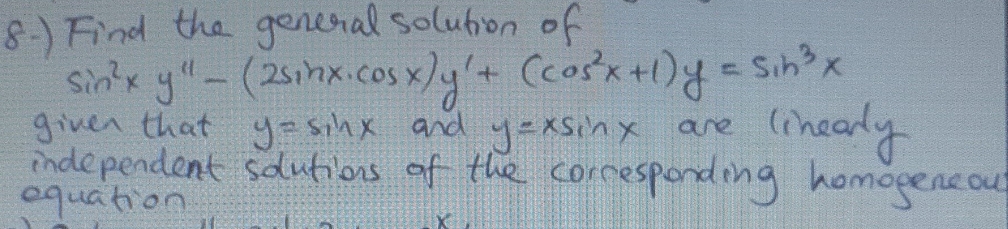 8-) Find the general solution of
sin²x y'' - (2sinx.cosx)y' + (cos²x+1)y = sin³x
given that y=sinx and y=xsinx are linearly
independent solutions of the corresponding homogeneou
equation